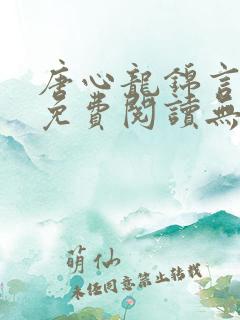 唐心龍錦言
免費閱讀無
萌仙
未经同意禁止转载